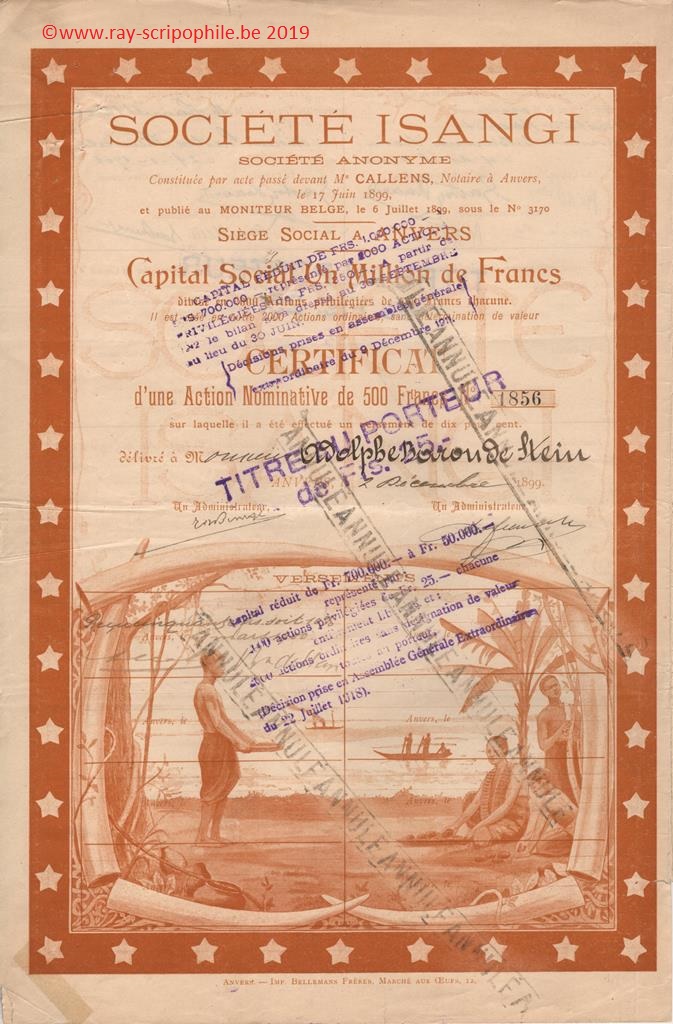 ©www.ray-scripophile.be 2019
SOCIÉTÉ ISANGI
SOCIÉTÉ ANONYME
Constituée par acte passé devant Me CALLENS, Notaire à Anvers,
le 17 Juin 1899,
et publié au MONITEUR BELGE, le 6 Juillet 1899, sous le No 3170
SIÈGE SOCIAL A ANVERS
CAPITAL RÉDUIT DE FRS. 1.000.000 -
700.000 par 2000 ACTIONS
PRIVILÉGIÉES DE FRS. 350 A partir de
le bilan sera dressé au 30 SEPTEMBRE
au lieu du 30 JUIN.
(Décisions prises en assemblée générale
extraordinaire du 9 Décembre
Capital Social Un Million de Francs
divisé en Actions privilégiées de Francs chacune.
Il est créé en outre 2000 Actions ordinaires, sans détermination de valeur
CERTIFICAT
d'une Action Nominative de 500 Francs No 1856
sur laquelle il a été effectué un versement de dix pour cent.
TITRE AU PORTEUR
de Frs. 25.-
délivré à Monsieur Adolphe Baron de Stein
ANVERS, Décembre 1899.
Un Administrateur, Un Administrateur,
VERSEMENTS
Capital réduit de Fr. 700.000.— à Fr. 50.000.—
représenté
actions privilégiées de Fr. 25.— chacune
entièrement et:
actions ordinaires sans désignation de valeur
au porteur.
(Décision prise en Assemblée Générale Extraordinaire
du 22 Juillet 1918).
Anvers, le Anvers, le
Anvers, le
ANNULÉ ANNULÉ ANNULÉ ANNULÉ ANNULÉ
ANNULÉ ANNULÉ ANNULÉ ANNULÉ ANNULÉ
ANNULÉ ANNULÉ ANNULÉ ANNULÉ
ANVERS. — IMP. BELLEMANS FRÈRES, MARCHÉ AUX ŒUFS, 12.